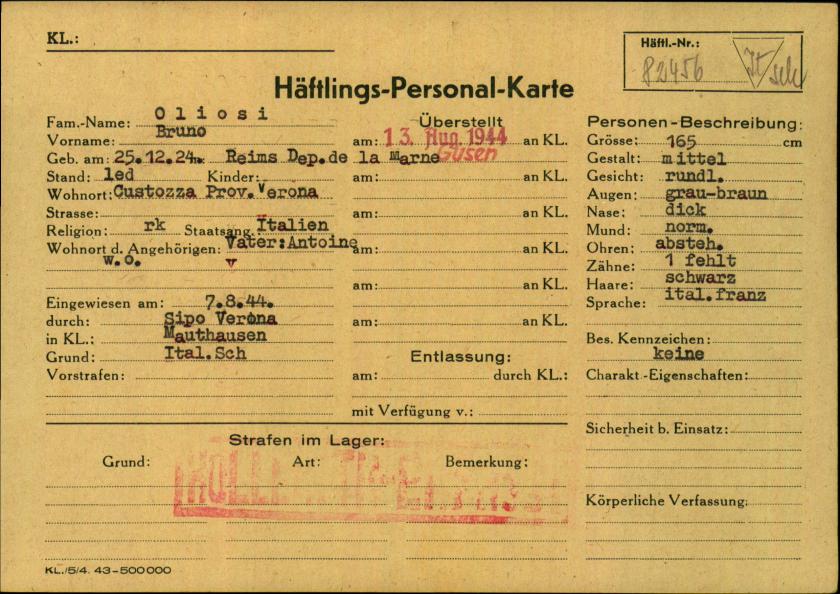 KL.:
Häftl.-Nr.:
82456
It
Sch
Häftlings-Personal-Karte
Fam.-Name: Oliosi
Vorname: Bruno
Geb. am: 25.12.24. Reims Dep.de la Marne
Stand: led Kinder:
Wohnort: Custozza Prov.Verona
Strasse:
Religion: rk Staatsang.: Italien
Wohnort d. Angehörigen: Vater:Antoine
w.o. v
Eingewiesen am: 7.8.44.
durch: Sipo Verona
in KL.: Mauthausen
Grund: Ital.Sch
Vorstrafen:
Überstellt
am: 13. Aug. 1944 an KL.
Gusen
am: an KL.
am: an KL.
am: an KL.
am: an KL.
am: an KL.
Entlassung:
am: durch KL.:
mit Verfügung v.:
Personen-Beschreibung:
Grösse: 165 cm
Gestalt: mittel
Gesicht: rundl.
Augen: grau-braun
Nase: dick
Mund: norm.
Ohren: absteh.
Zähne: 1 fehlt
Haare: schwarz
Sprache: ital.franz
Bes. Kennzeichen:
keine
Charakt.-Eigenschaften:
Sicherheit b. Einsatz:
Körperliche Verfassung:
Strafen im Lager:
Grund: Art: Bemerkung:
KL./5/4. 43-500000